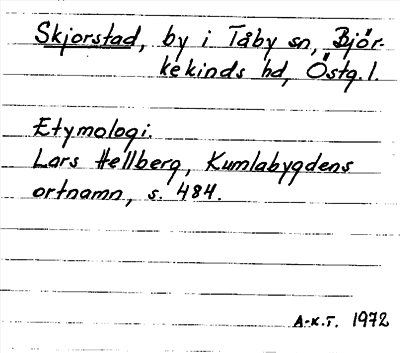 Skjorstad, by i Tåby sn, Björ-
kekinds hd, Östg. l.
Etymologi:
Lars Hellberg, Kumlabygdens
ortnamn, s. 484.
A-K.T. 1972